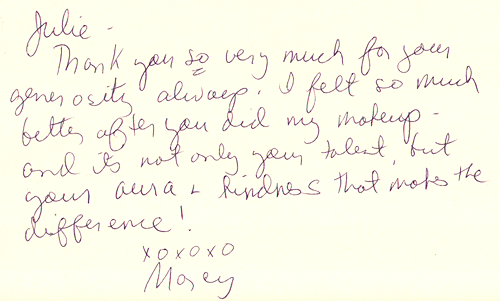 Julie -
Thank you so very much for your
generosity always. I felt so much
better after you did my makeup -
and it's not only your talent, but
your aura + kindness that makes the
difference!
xoxoxo